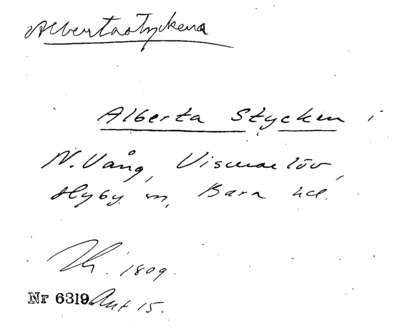 Albertastyckena
Alberta Stycken i
N. Vång, Vismarlöv,
Hyby sn, Bara hd.
1809.
Nr 6319. Ant 15.